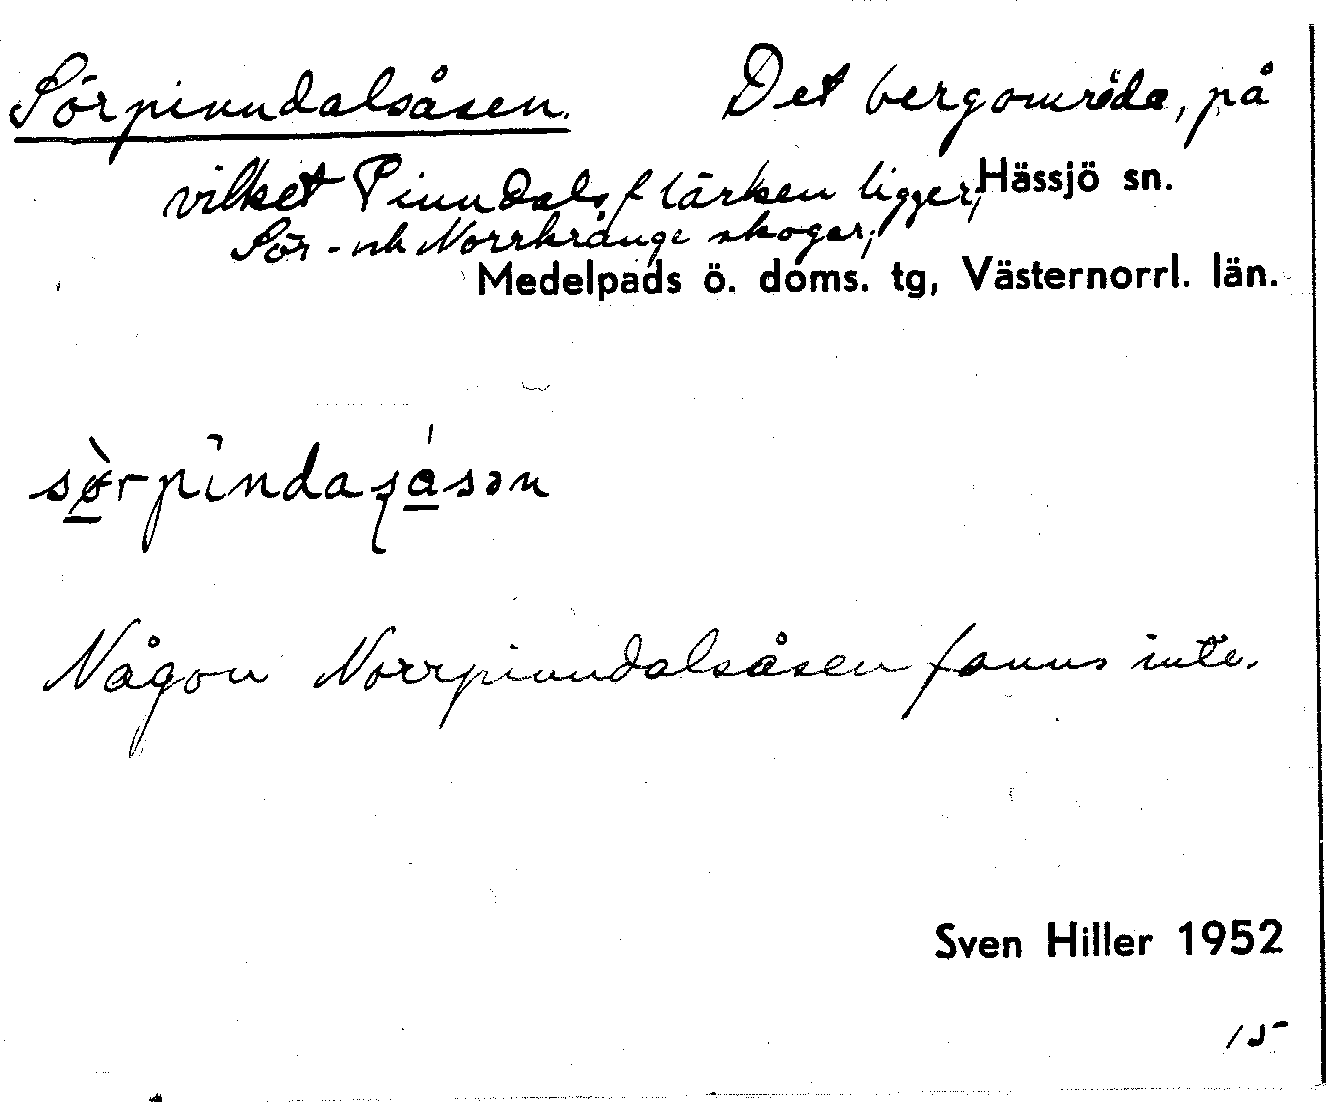 Sörpinndalsåsen. Det bergområde, på
vilket Pinndalsflärken ligger, Hässjö sn.
Sör- och Norrkrånge skogar;
Medelpads ö. doms. tg, Västernorrl. län.
Någon Norrpinndalsåsen fanns inte.
Sven Hiller 1952
15